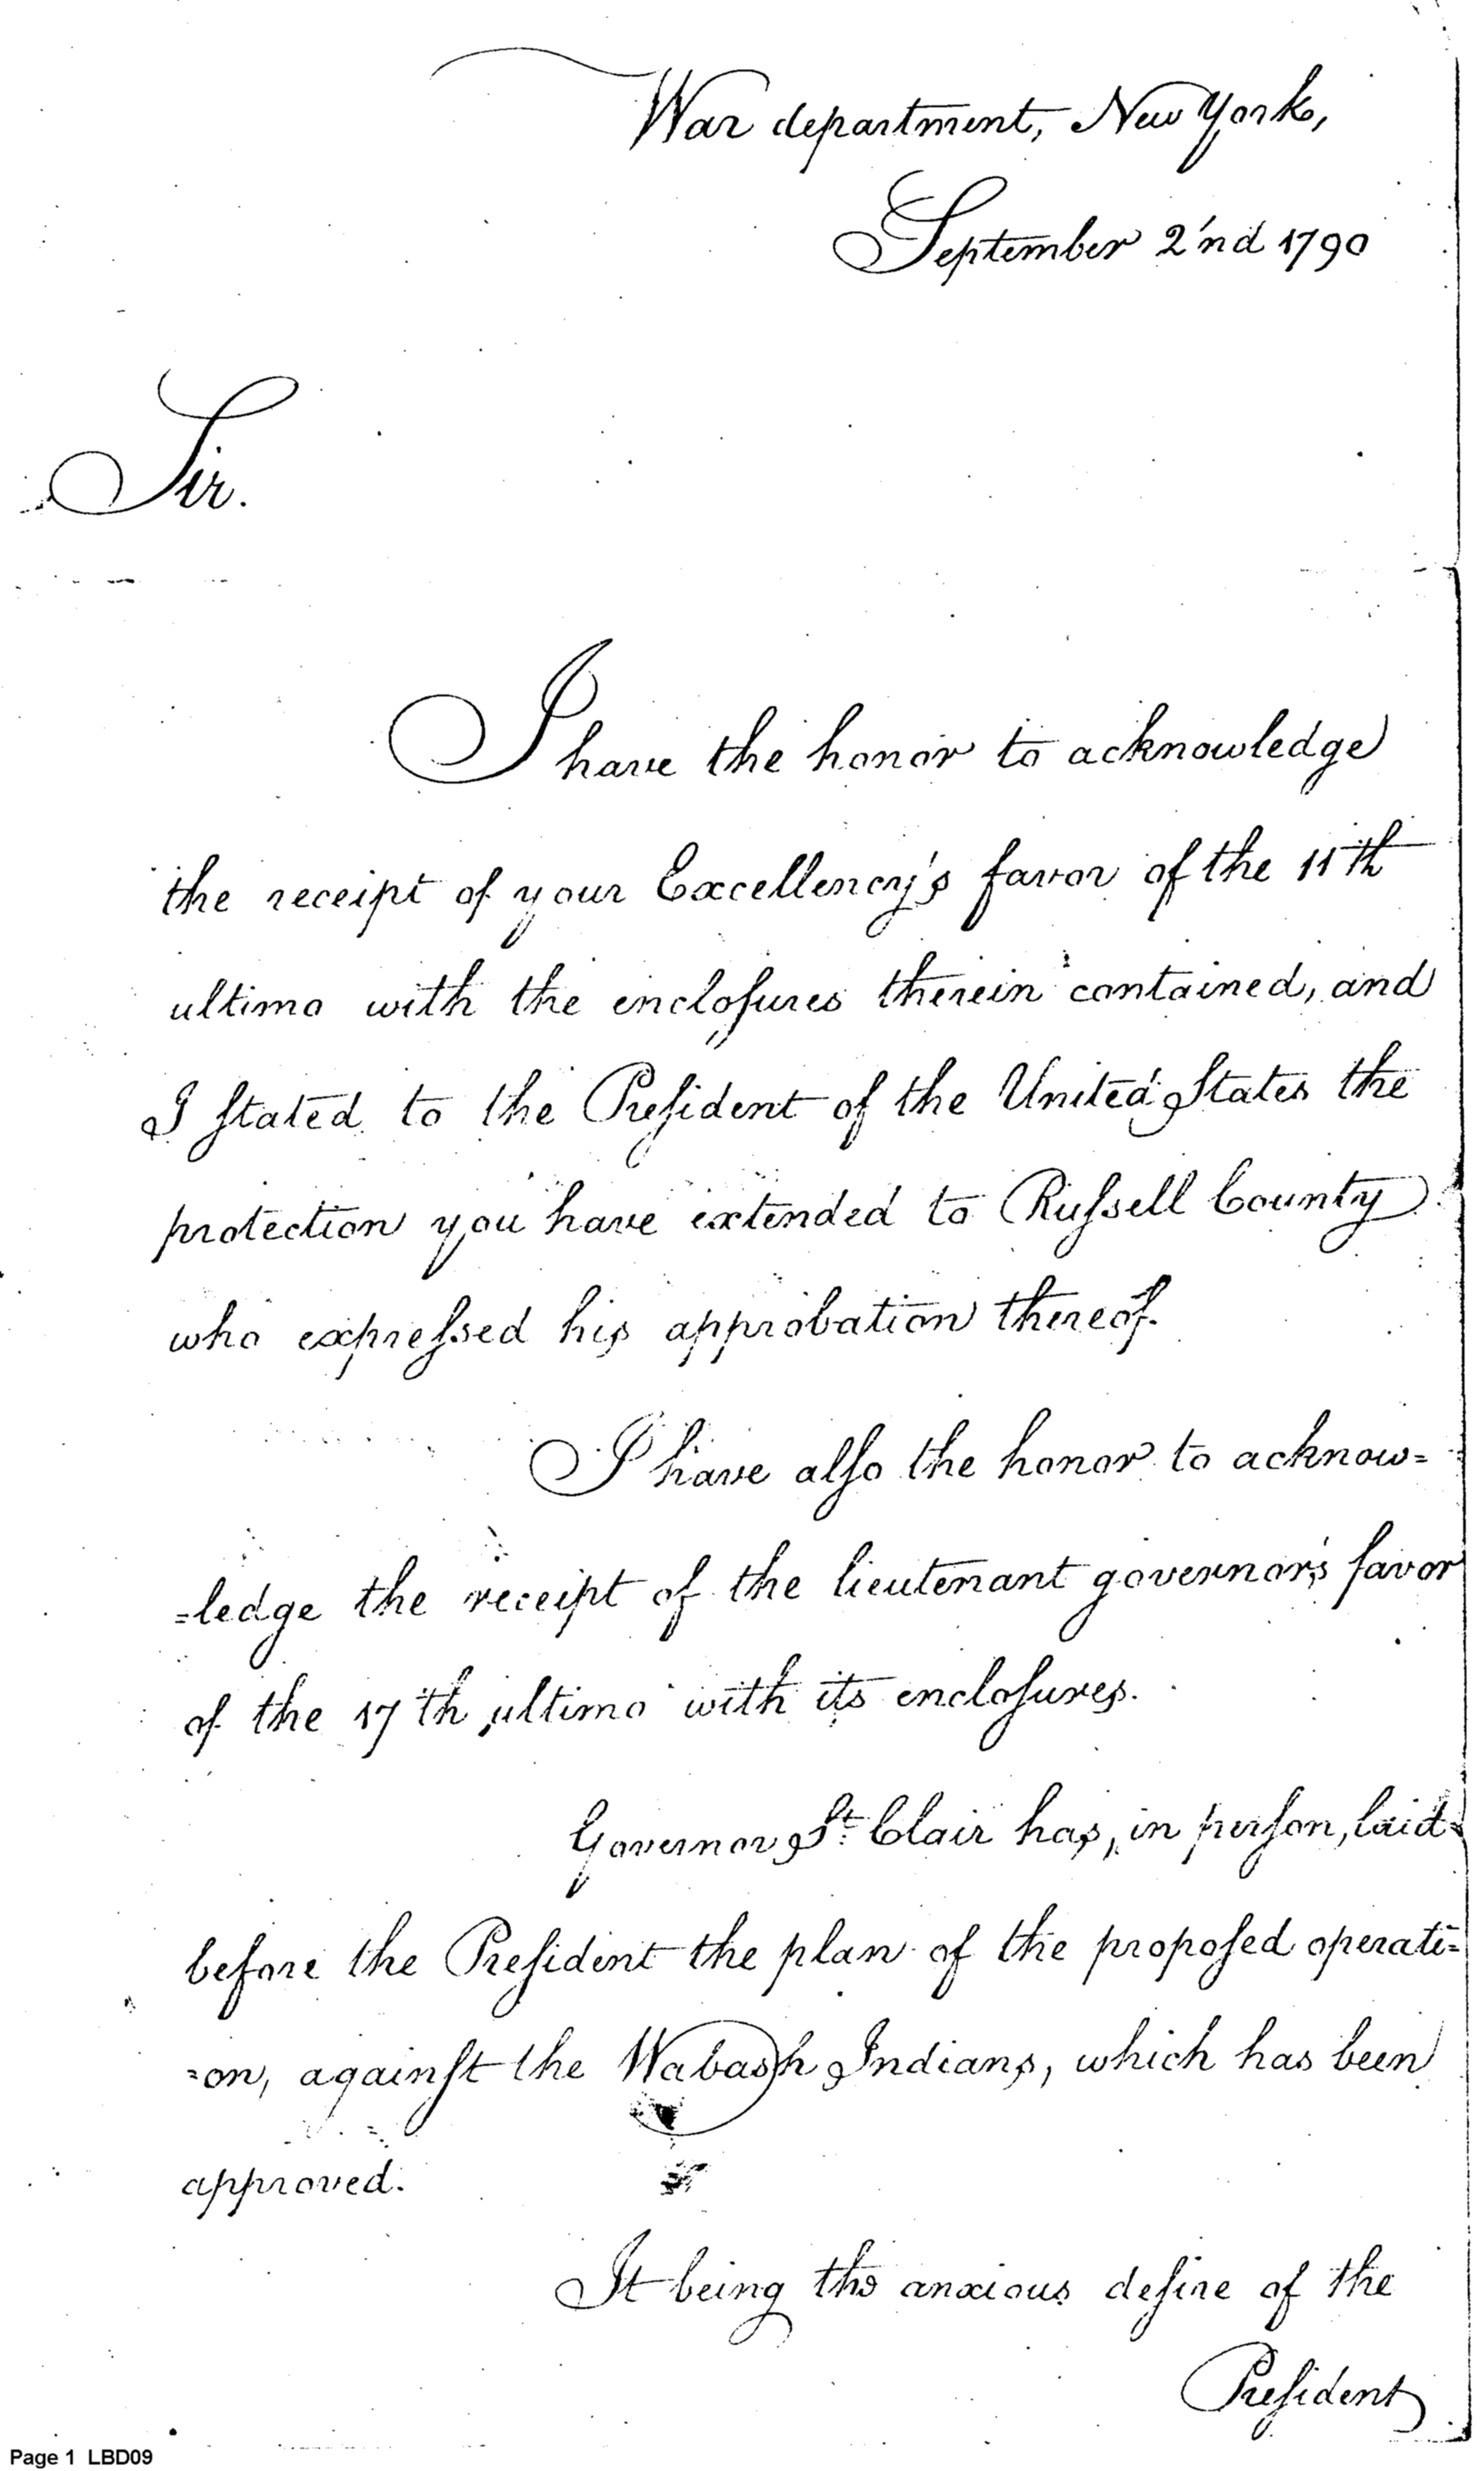 War department, New York,
September 2'nd 1790
Sir.
I have the honor to acknowledge
the receipt of your Excellency's favor of the 11th
ultimo with the encloſures therein contained, and
I ſtated to the Preſident of the United States the
protection you have extended to Ruſsell County
who expreſsed his approbation thereof.
I have alſo the honor to acknow=
=ledge the receipt of the lieutenant governor's favor
of the 17th ultimo with its encloſures.
Governor St. Clair has, in perſon, laid
before the Preſident the plan of the propoſed operati=
=on, againſt the Wabash Indians, which has been
approved.
It being the anxious deſire of the
Preſident
Page 1 LBD09